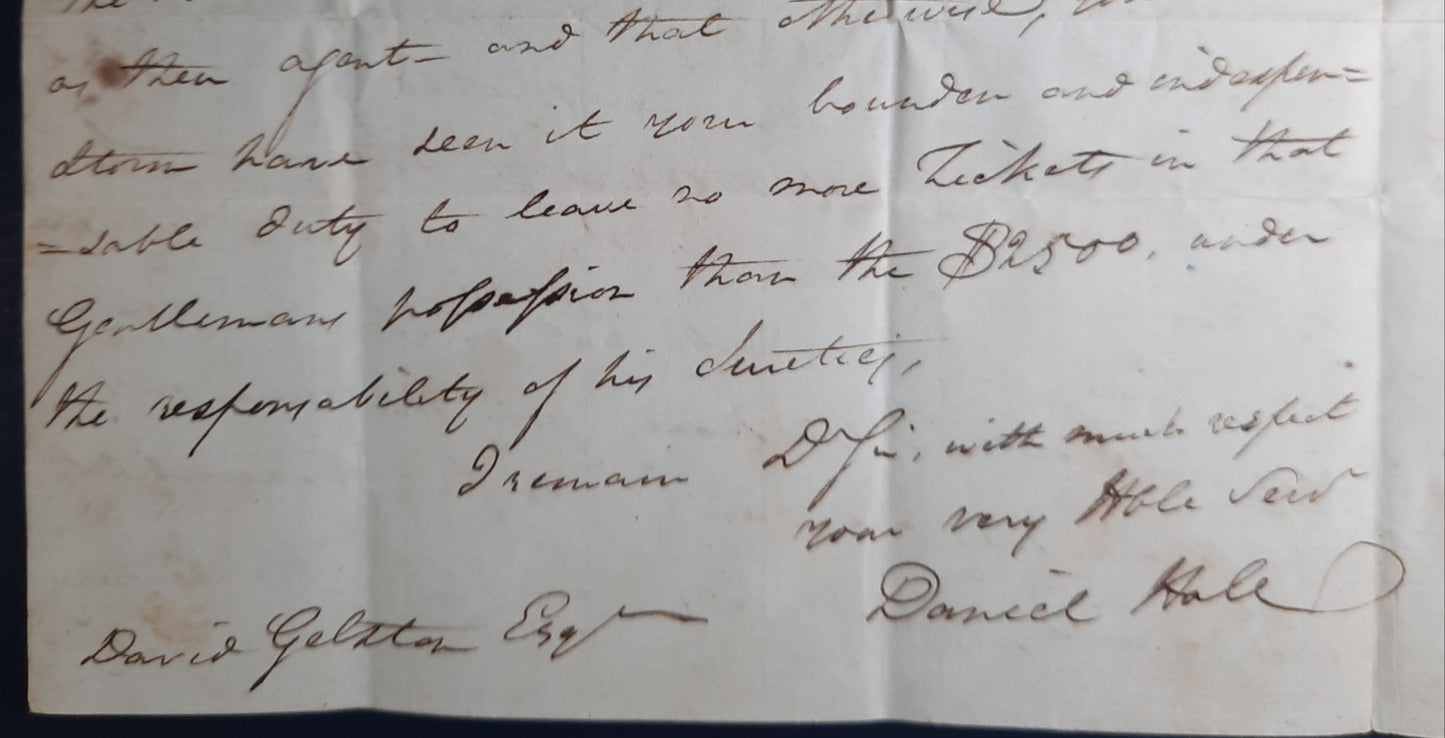 the
as their agent – and that otherwise,
have been it your bounden and indespen=
=sable duty to leave no more Tickets in that
Gentlemans possession than the $2500. under
the responsability of his Sureties,
I remain D Sir, with much respect
your very Hble Servt
Daniel Hale
David Gelston Esqr